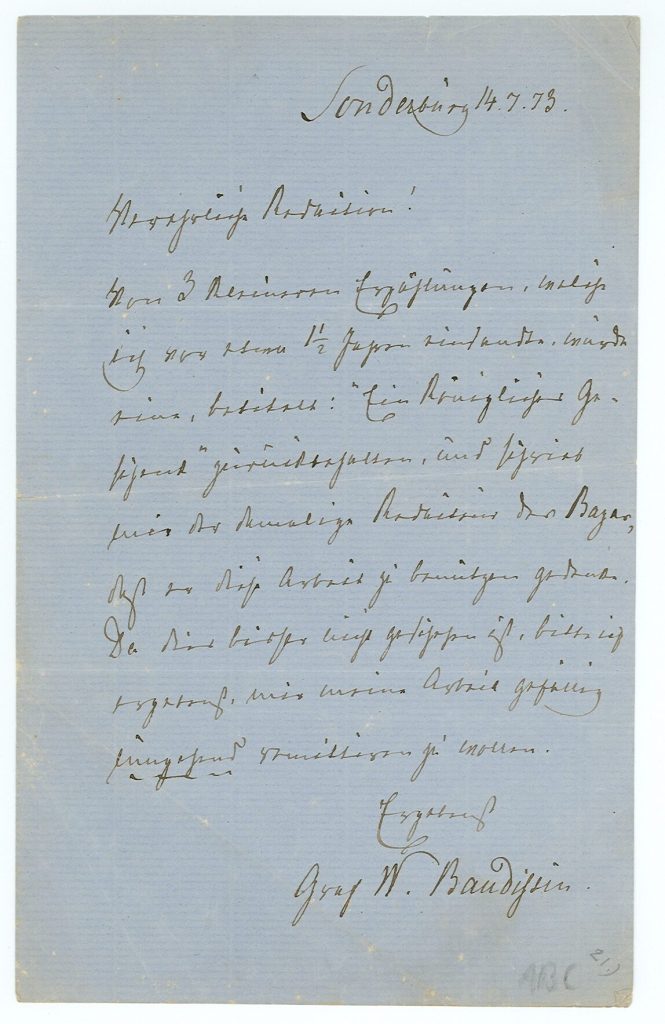 Sonderburg 14.7.73.
Verehrliche Redaction!
Von 3 kleineren Erzählungen, welche
ich vor etwa 1½ Jahren einsandte, wurde
eine, betitelt: "Ein Königliches Ge-
schenk" zurückbehalten, und schrieb
mir der damalige Redacteur des Bazar,
daß er diese Arbeit zu benützen gedenke.
Da dies bisher nicht geschehen ist, bitte ich
ergebenst, mir meine Arbeit gefällig
umgehend remittieren zu wollen.
Ergebenst
Graf W. Baudissin.
ABC
21)